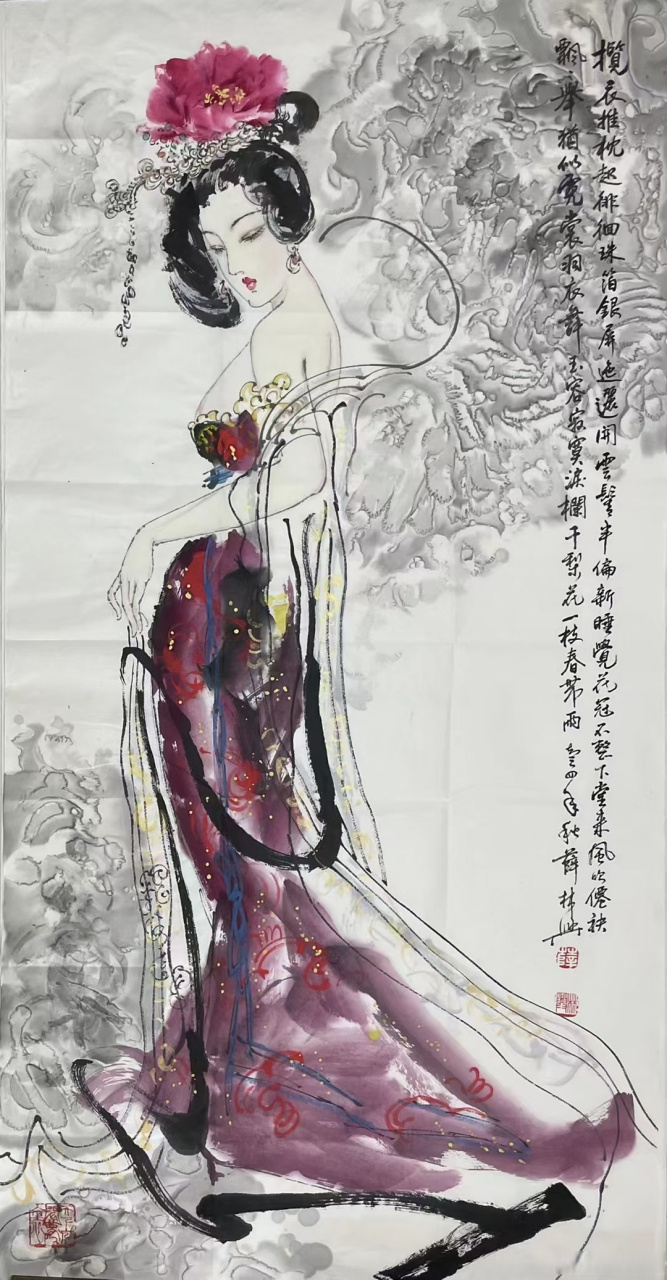 攬衣推枕起徘徊珠箔銀屏迤邐開雲鬢半偏新睡覺花冠不整下堂來風吹僊袂
飄〻舉猶似霓裳羽衣舞玉容寂寞淚欄干梨花一枝春帶雨 年秋薛林興